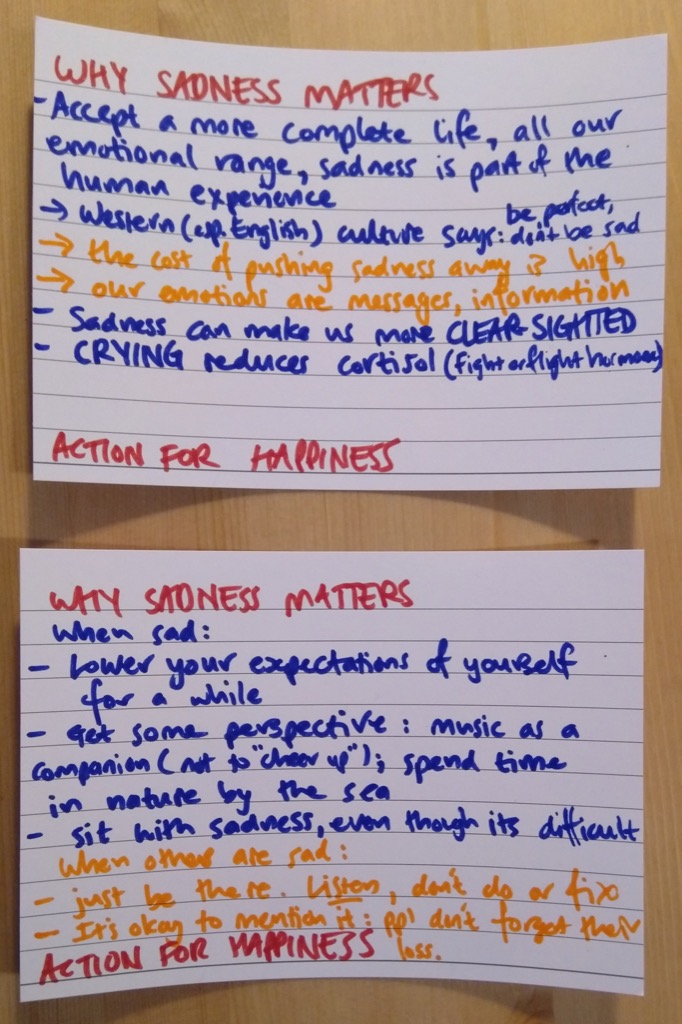 WHY SADNESS MATTERS
- Accept a more complete life, all our
emotional range, sadness is part of the
human experience
→ Western (esp. English) culture says: be perfect,
don't be sad
→ the cost of pushing sadness away is high
→ our emotions are messages, information
- Sadness can make us more CLEAR-SIGHTED
- CRYING reduces cortisol (fight or flight hormone)
ACTION FOR HAPPINESS
WHY SADNESS MATTERS
When sad:
- Lower your expectations of yourself
for a while
- Get some perspective: music as a
companion (not to "cheer up"); spend time
in nature by the sea
- sit with sadness, even though its difficult
When others are sad:
- just be there. Listen, don't do or fix
- It's okay to mention it: ppl don't forget their
loss.
ACTION FOR HAPPINESS